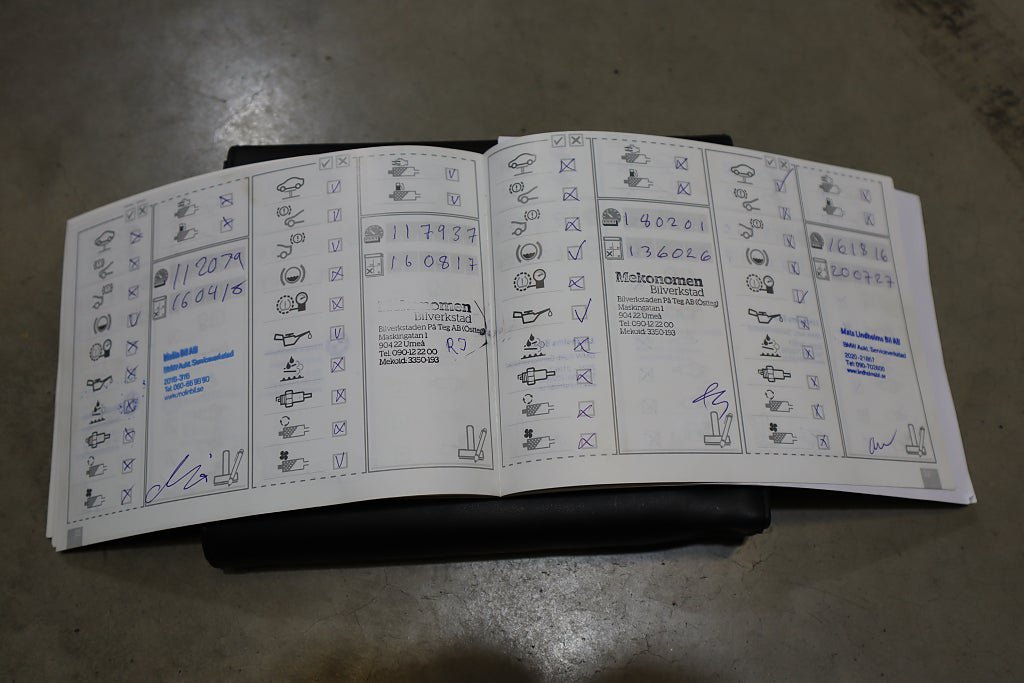 112079
160418
BMW Aukt. Serviceverkstad
2016-316
117937
160817
Mekonomen
Bilverkstad
Bilverkstaden På Teg AB (Östteg)
Maskingatan 1
904 22 Umeå
Tel. 090-12 22 00
Mekoid: 3350-193
RJ
180201
136026
Mekonomen
Bilverkstad
Bilverkstaden På Teg AB (Östteg)
Maskingatan 1
904 22 Umeå
Tel. 090-12 22 00
Mekoid: 3350-193
161816
200727
Mats Lindholms Bil AB
BMW Aukt. Serviceverkstad
2020-21861
Tel: 090-702600
www.lindholmsbil.se